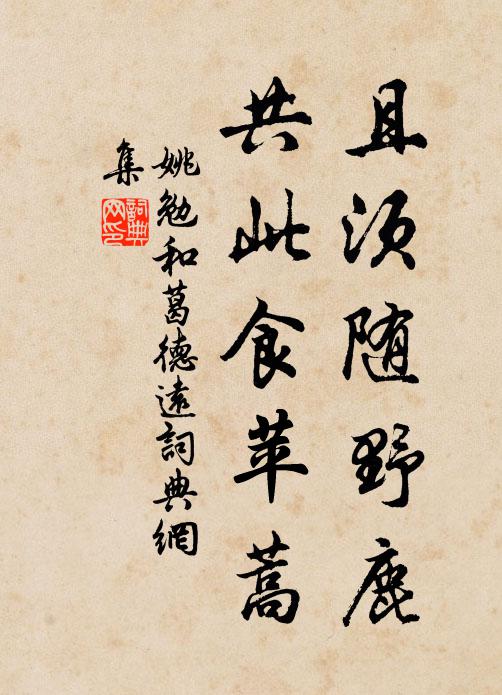 且须随野鹿
共此食苹蒿
姚勉和葛德遠詞典網
集
詞典
网印